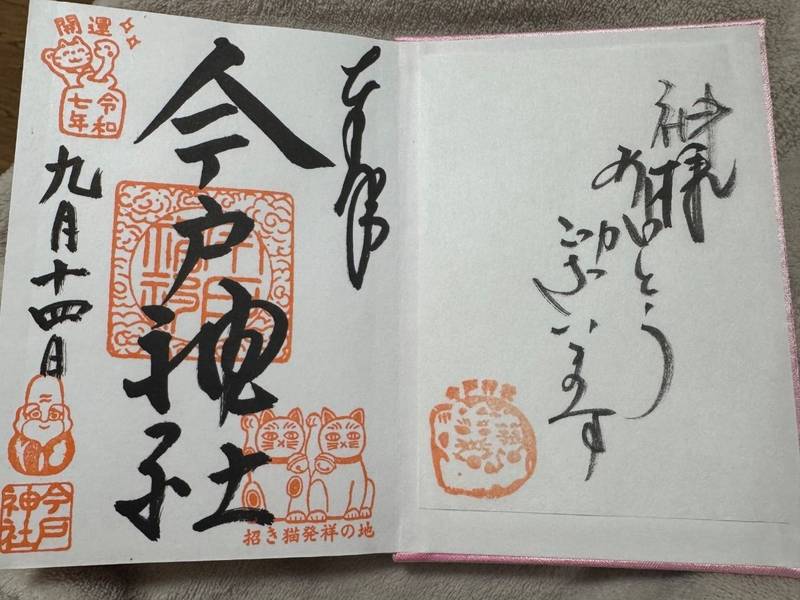 神様
ありがとう
ございます
奉拝
今戸神社
開運
令和
七年
九月十四日
今戸
神社
招き猫発祥の地